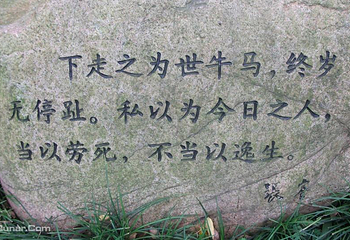 下走之为世牛马，终岁
无停趾。私以为今日之人，
当以劳死，不当以逸生。
张謇
unar.com